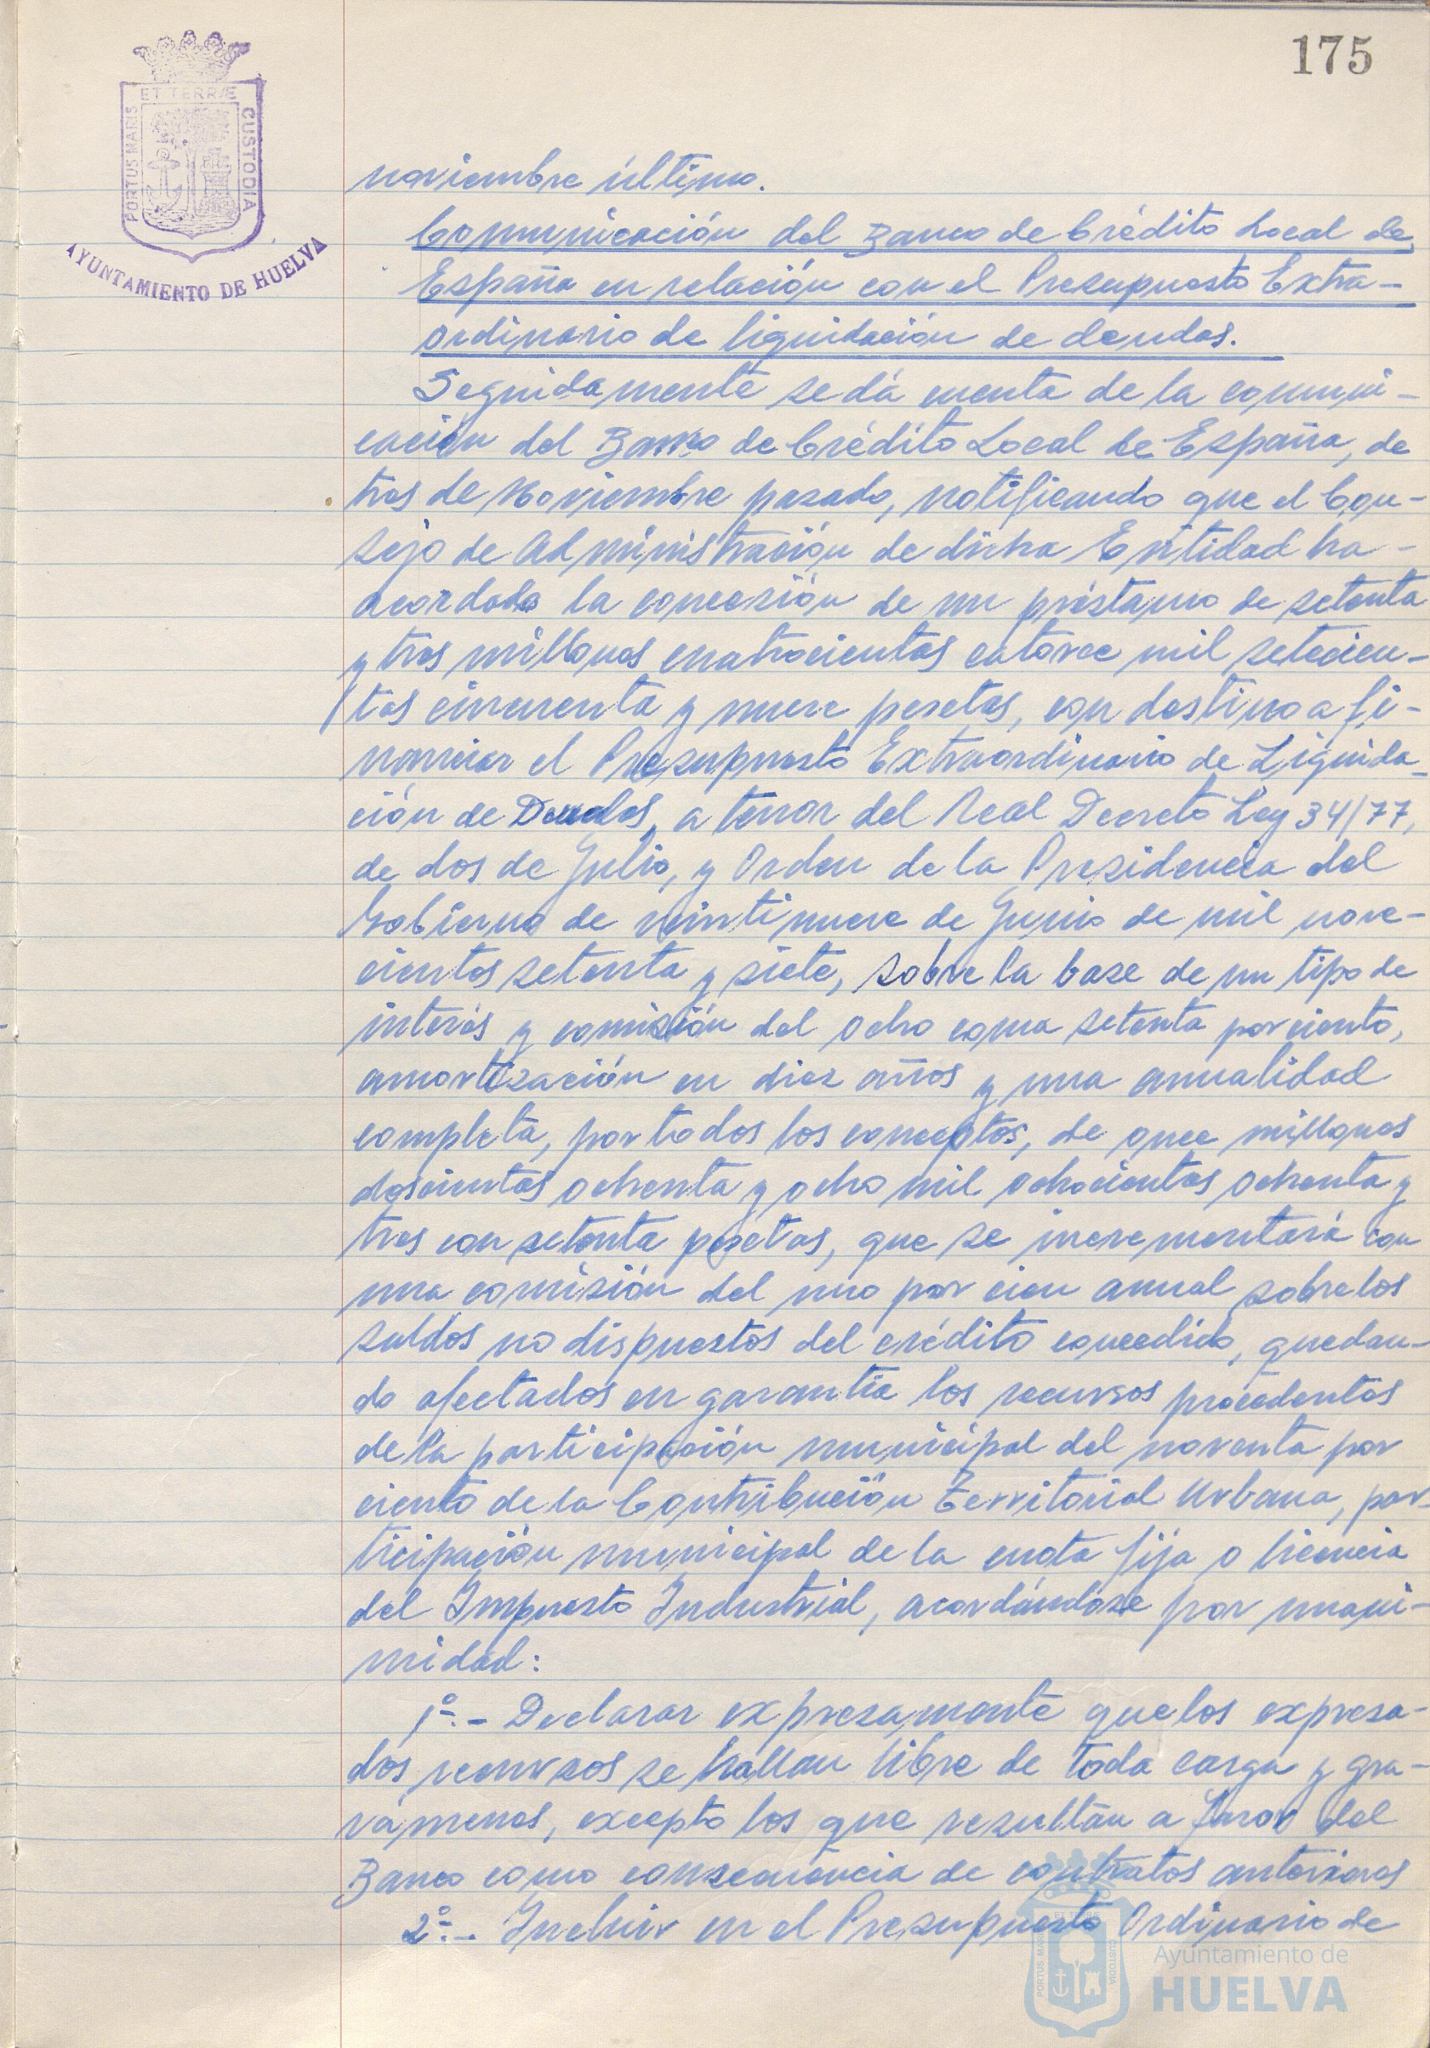 175
ET TERRÆ
PORTUS MARIS
CUSTODIA
AYUNTAMIENTO DE HUELVA
noviembre último.
Comunicación del Banco de Crédito Local de
España en relación con el Presupuesto Extra-
ordinario de liquidación de deudas.
Seguidamente se dá cuenta de la comuni-
cación del Banco de Crédito Local de España, de
tres de Noviembre pasado, notificando que el Con-
sejo de Administración de dicha Entidad ha
acordado la concesión de un préstamo de setenta
y tres millones cuatrocientas catorce mil setecien-
tas cincuenta y nueve pesetas, con destino a fi-
nanciar el Presupuesto Extraordinario de Liquida-
ción de Deudas, a tenor del Real Decreto Ley 34/77,
de dos de Julio, y Orden de la Presidencia del
Gobierno de veintinueve de Junio de mil nove-
cientos setenta y siete, sobre la base de un tipo de
interés y comisión del ocho coma setenta por ciento,
amortización en diez años y una anualidad
completa, por todos los conceptos, de once millones
doscientas ochenta y ocho mil ochocientas ochenta y
tres con setenta pesetas, que se incrementará con
una comisión del uno por cien anual sobre los
saldos no dispuestos del crédito concedido, quedan-
do afectados en garantía los recursos procedentes
de la participación municipal del noventa por
ciento de la Contribución Territorial Urbana, par-
ticipación municipal de la cuota fija o licencia
del Impuesto Industrial, acordándose por unani-
midad:
1º.- Declarar expresamente que los expresa-
dos recursos se hallan libre de toda carga y gra-
vámenes, excepto los que resultan a favor del
Banco como consecuencia de contratos anteriores
2º.- Incluir en el Presupuesto Ordinario de
Ayuntamiento de
HUELVA